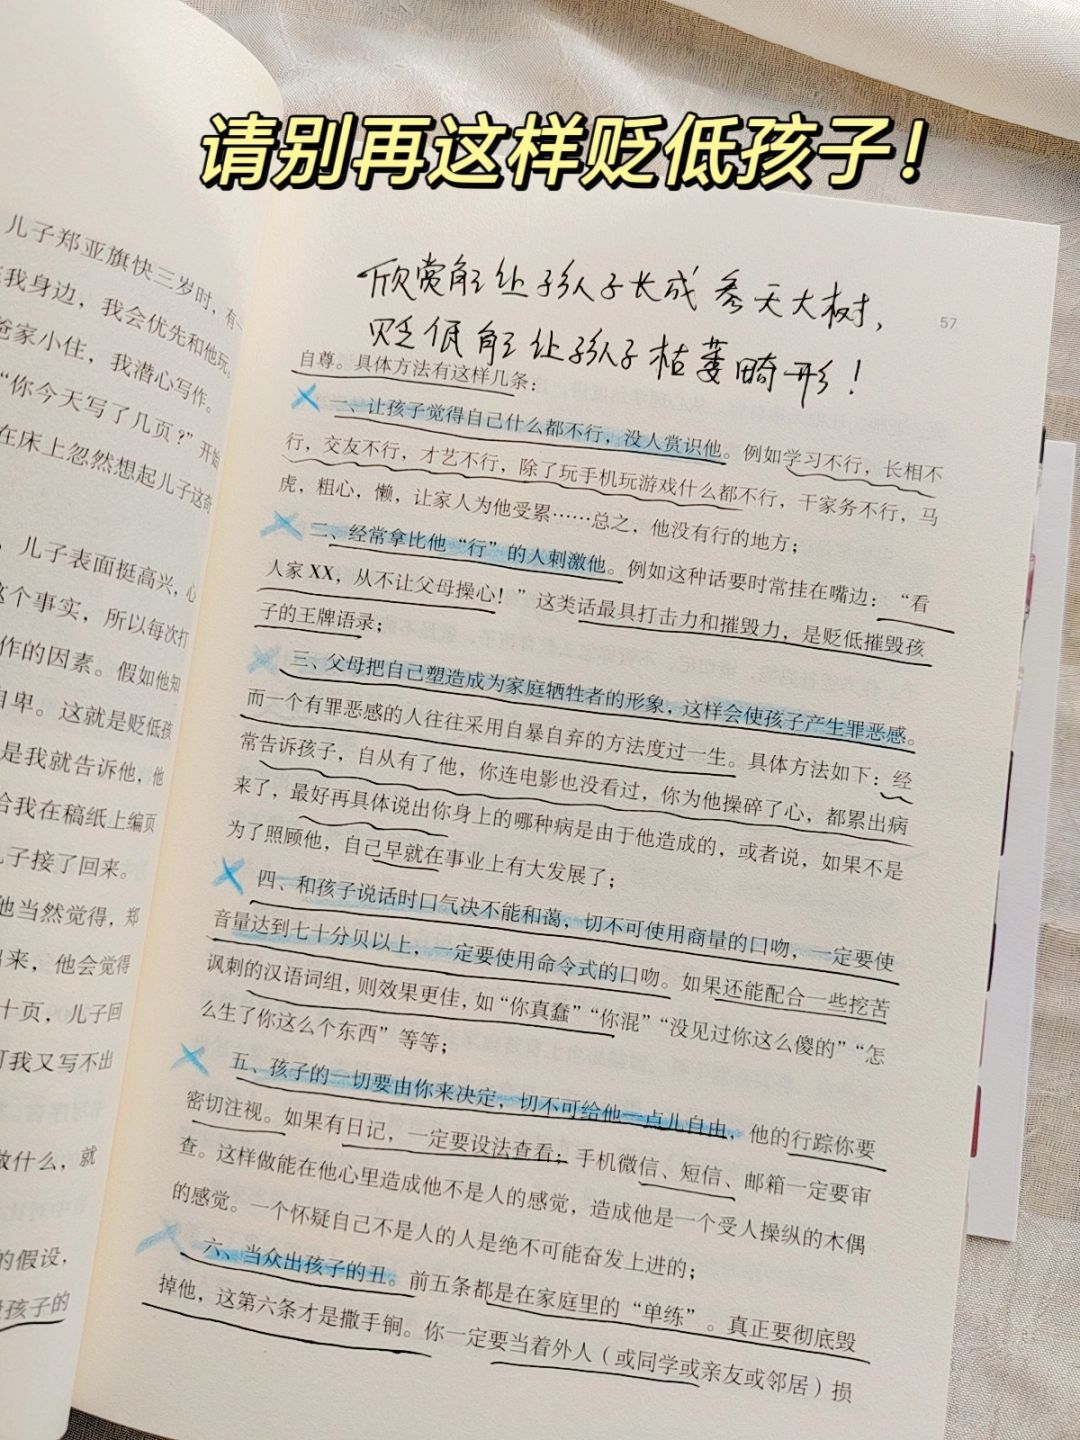 请别再这样贬低孩子！
儿子郑亚旗快三岁时，有一
我身边，我会优先和他玩。
爸家小住，我潜心写作。
“你今天写了几页？”开始
在床上忽然想起儿子这奇
，儿子表面挺高兴，心
这个事实，所以每次打
作的因素。假如他知
自卑。这就是贬低孩
是我就告诉他，他
给我在稿纸上编页
儿子接了回来。
他当然觉得，郑
出来，他会觉得
十页，儿子回
我又写不出
做什么，就
的假设，
孩子的
欣赏能让孩子长成参天大树，
贬低能让孩子枯萎畸形！
57
自尊。具体方法有这样几条：
一、让孩子觉得自己什么都不行，没人赏识他。例如学习不行，长相不
行，交友不行，才艺不行，除了玩手机玩游戏什么都不行，干家务不行，马
虎，粗心，懒，让家人为他受累……总之，他没有行的地方；
二、经常拿比他“行”的人刺激他。例如这种话要时常挂在嘴边：“看
人家XX，从不让父母操心！”这类话最具打击力和摧毁力，是贬低摧毁孩
子的王牌语录；
三、父母把自己塑造成为家庭牺牲者的形象，这样会使孩子产生罪恶感。
而一个有罪恶感的人往往采用自暴自弃的方法度过一生。具体方法如下：经
常告诉孩子，自从有了他，你连电影也没看过，你为他操碎了心，都累出病
来了，最好再具体说出你身上的哪种病是由于他造成的，或者说，如果不是
为了照顾他，自己早就在事业上有大发展了；
四、和孩子说话时口气决不能和蔼，切不可使用商量的口吻，一定要使
音量达到七十分贝以上，一定要使用命令式的口吻。如果还能配合一些挖苦
讽刺的汉语词组，则效果更佳，如“你真蠢”“你混”“没见过你这么傻的”“怎
么生了你这么个东西”等等；
五、孩子的一切要由你来决定，切不可给他一点儿自由，他的行踪你要
密切注视。如果有日记，一定要设法查看；手机微信、短信、邮箱一定要审
查。这样做能在他心里造成他不是人的感觉，造成他是一个受人操纵的木偶
的感觉。一个怀疑自己不是人的人是绝不可能奋发上进的；
六、当众出孩子的丑。前五条都是在家庭里的“单练”。真正要彻底毁
掉他，这第六条才是撒手锏。你一定要当着外人（或同学或亲友或邻居）损